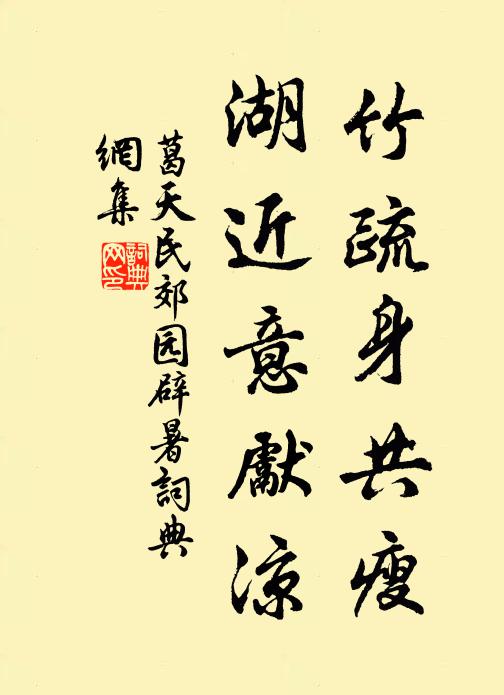 竹疏身共瘦
湖近意獻涼
葛天民郊园辟暑詞典
網集
詞典
网印